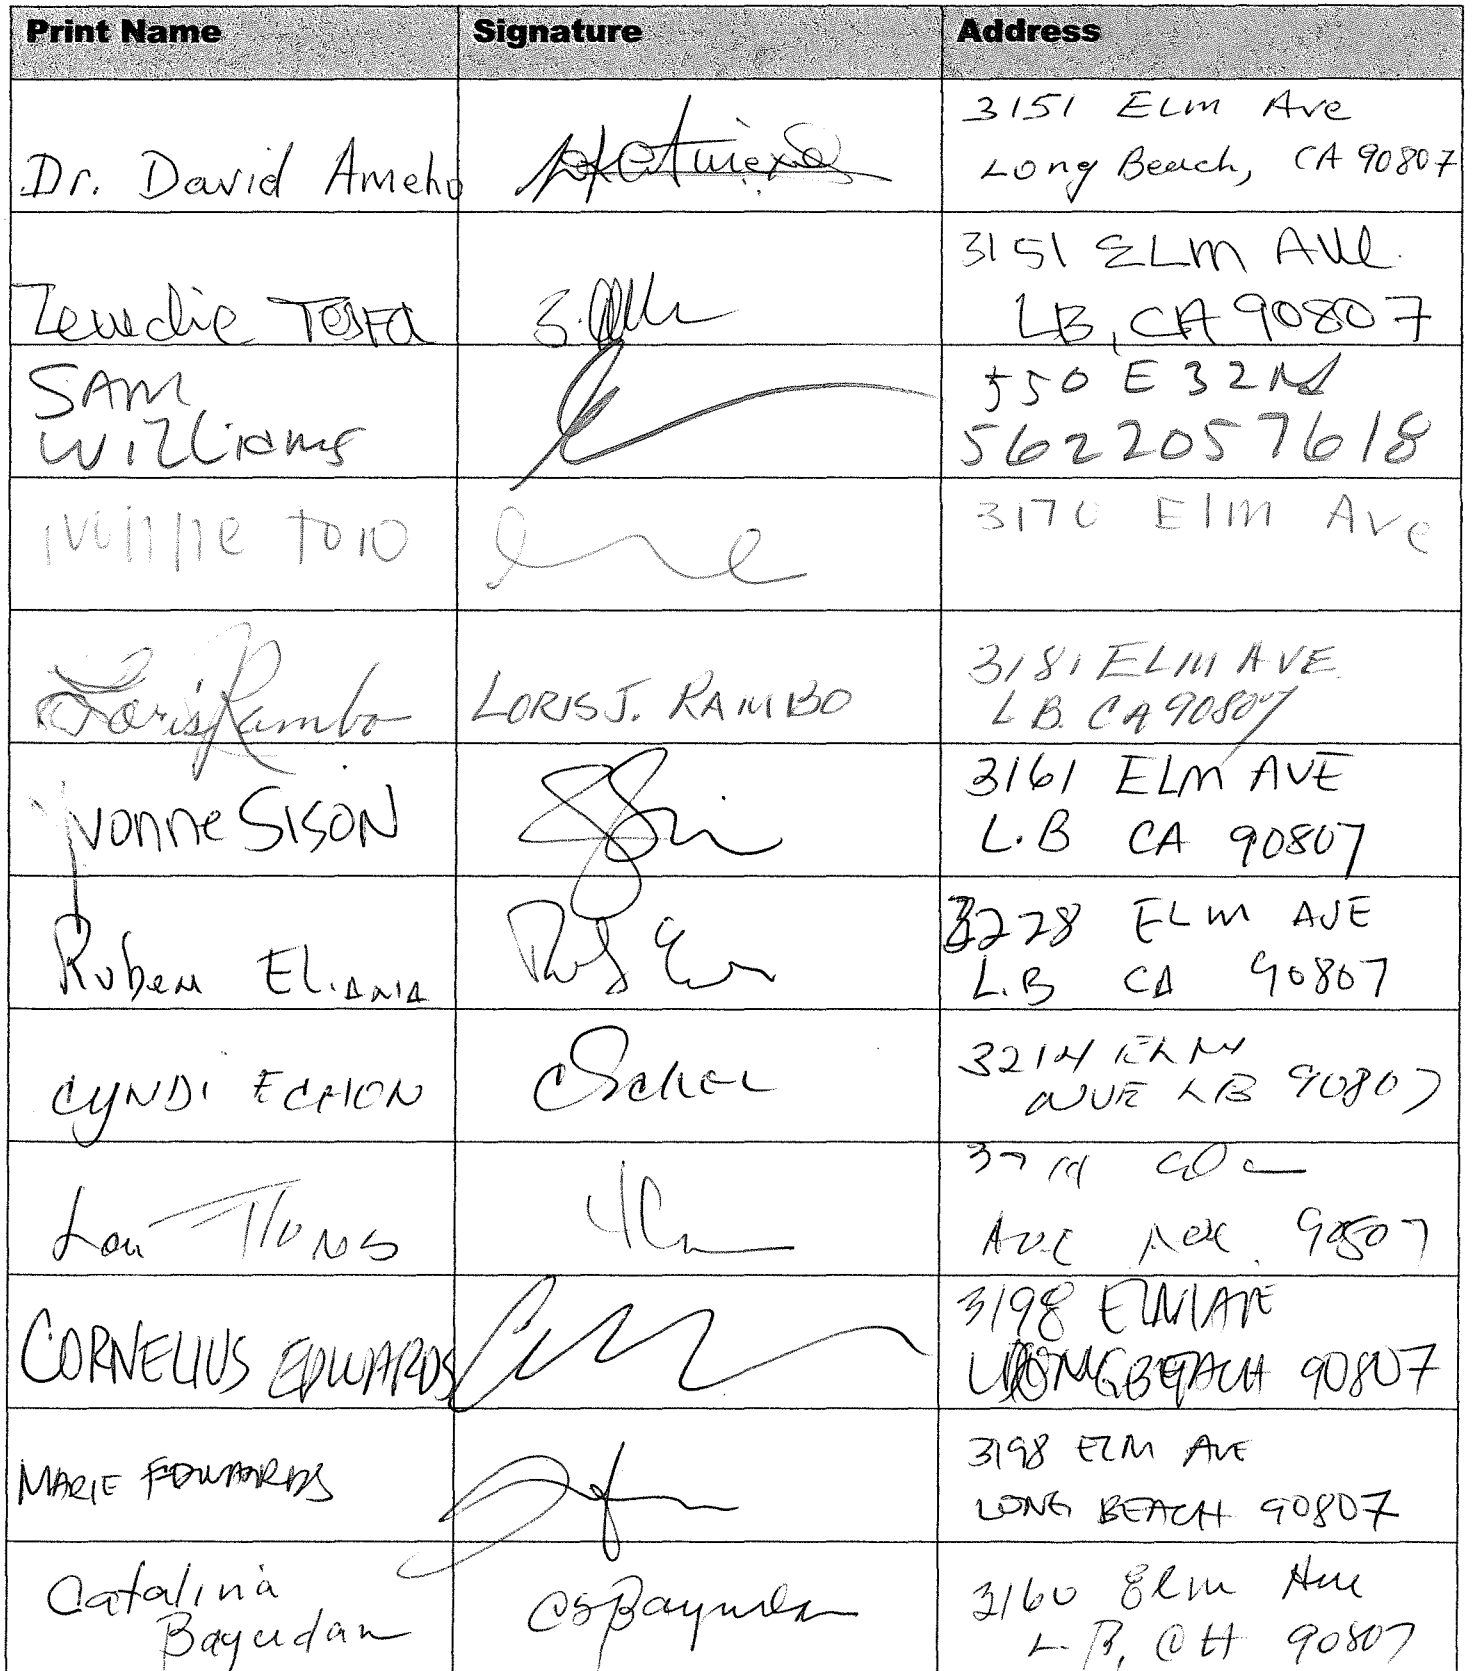 Print Name Signature Address
Dr. David Ameho
3151 Elm Ave
Long Beach, CA 90807
Zewdie Tesfa
3151 ELM AVE.
LB, CA 90807
SAM
Williams
550 E 32nd
5622057618
3170 Elm Ave
Loris Rambo
LORIS J. RAMBO
3181 ELM AVE
L B. CA 90807
Yvonne SISON
3161 ELM AVE
L.B CA 90807
Ruben Eliania
3228 ELM AVE
L.B CA 90807
CYNDI ECHON
3214 ELM
AVE LB 90807
Lou
Ave 90807
CORNELIUS EDWARDS
3198 ELM AVE
LONG BEACH 90807
MARIE EDWARDS
3198 ELM AVE
LONG BEACH 90807
Catalina
Bayudan
CSBayudan
3160 Elm Ave
L.B, CA 90807